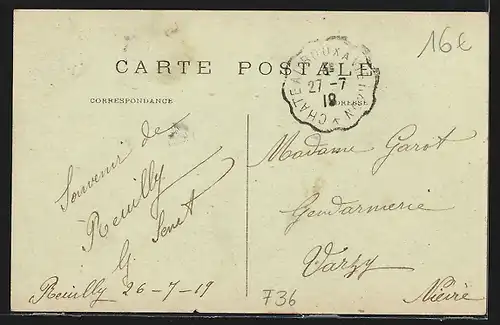 16€
CARTE POSTALE
CHATEAUROUX A VIERZON
27-7
19
CORRESPONDANCE
ADRESSE
Souvenir de
Reuilly
G. Senet
Reuilly 26-7-19
Madame Garot
Gendarmerie
Varzy
Nièvre
F36